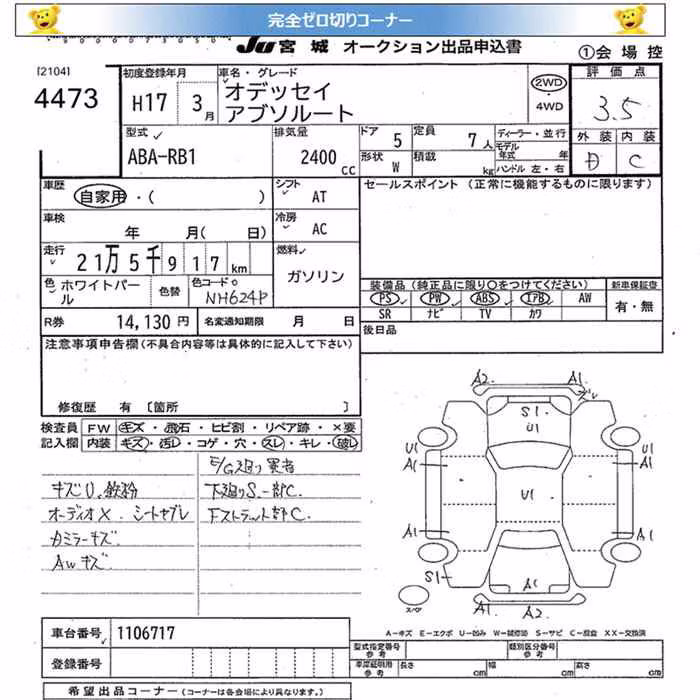 完全ゼロ切りコーナー
JU 宮城 オークション出品申込書
①会場控
[2104]
4473
初度登録年月
H17 3月
車名・グレード
オデッセイ
アブソルート
2WD
4WD
評価点
3.5
外装 内装
D C
型式
ABA-RB1
排気量
2400 CC
ドア 5
定員 7人
形状 W
積載 kg
ディーラー・並行
モデル年式 年
ハンドル 左・右
車歴
自家用・( )
シフト AT
セールスポイント (正常に機能するものに限ります)
車検
年 月( 日)
冷房 AC
走行
21万5千917km
燃料
ガソリン
色 ホワイトパール
色替
色コード
NH624P
装備品 (純正品に限り○をつけてください)
新車保証書
PS PW ABS エアB AW
SR ナビ TV カワ
有・無
R券 14,130円
名変通知期限 月 日
後日品
注意事項申告欄 (不具合内容等は具体的に記入して下さい)
修復歴 有 〔箇所 〕
検査員記入欄
FW キズ・飛石・ヒビ割・リペア跡・×要
内装 キズ・汚レ・コゲ・穴・スレ・キレ・破レ
E/G廻り異音
キズU.鉄粉
下廻りS.一部C.
オーディオX. シートヤブレ
Fストラット部C.
カミラーキズ
Awキズ
A2 A1
ズレ
S1
U1
U1 U1
A1 A1
U1
A1 A1
S1
A1
スペア
A1 A2
A1
A-キズ E-エクボ U-凹み W-補修跡 S-サビ C-腐食 XX-交換済
車台番号 1106717
登録番号
型式指定番号
参考
類別区分番号
参考
車庫証明用
参考
長さ cm 幅 cm 高さ cm
希望出品コーナー (コーナーは各会場により異なります。)